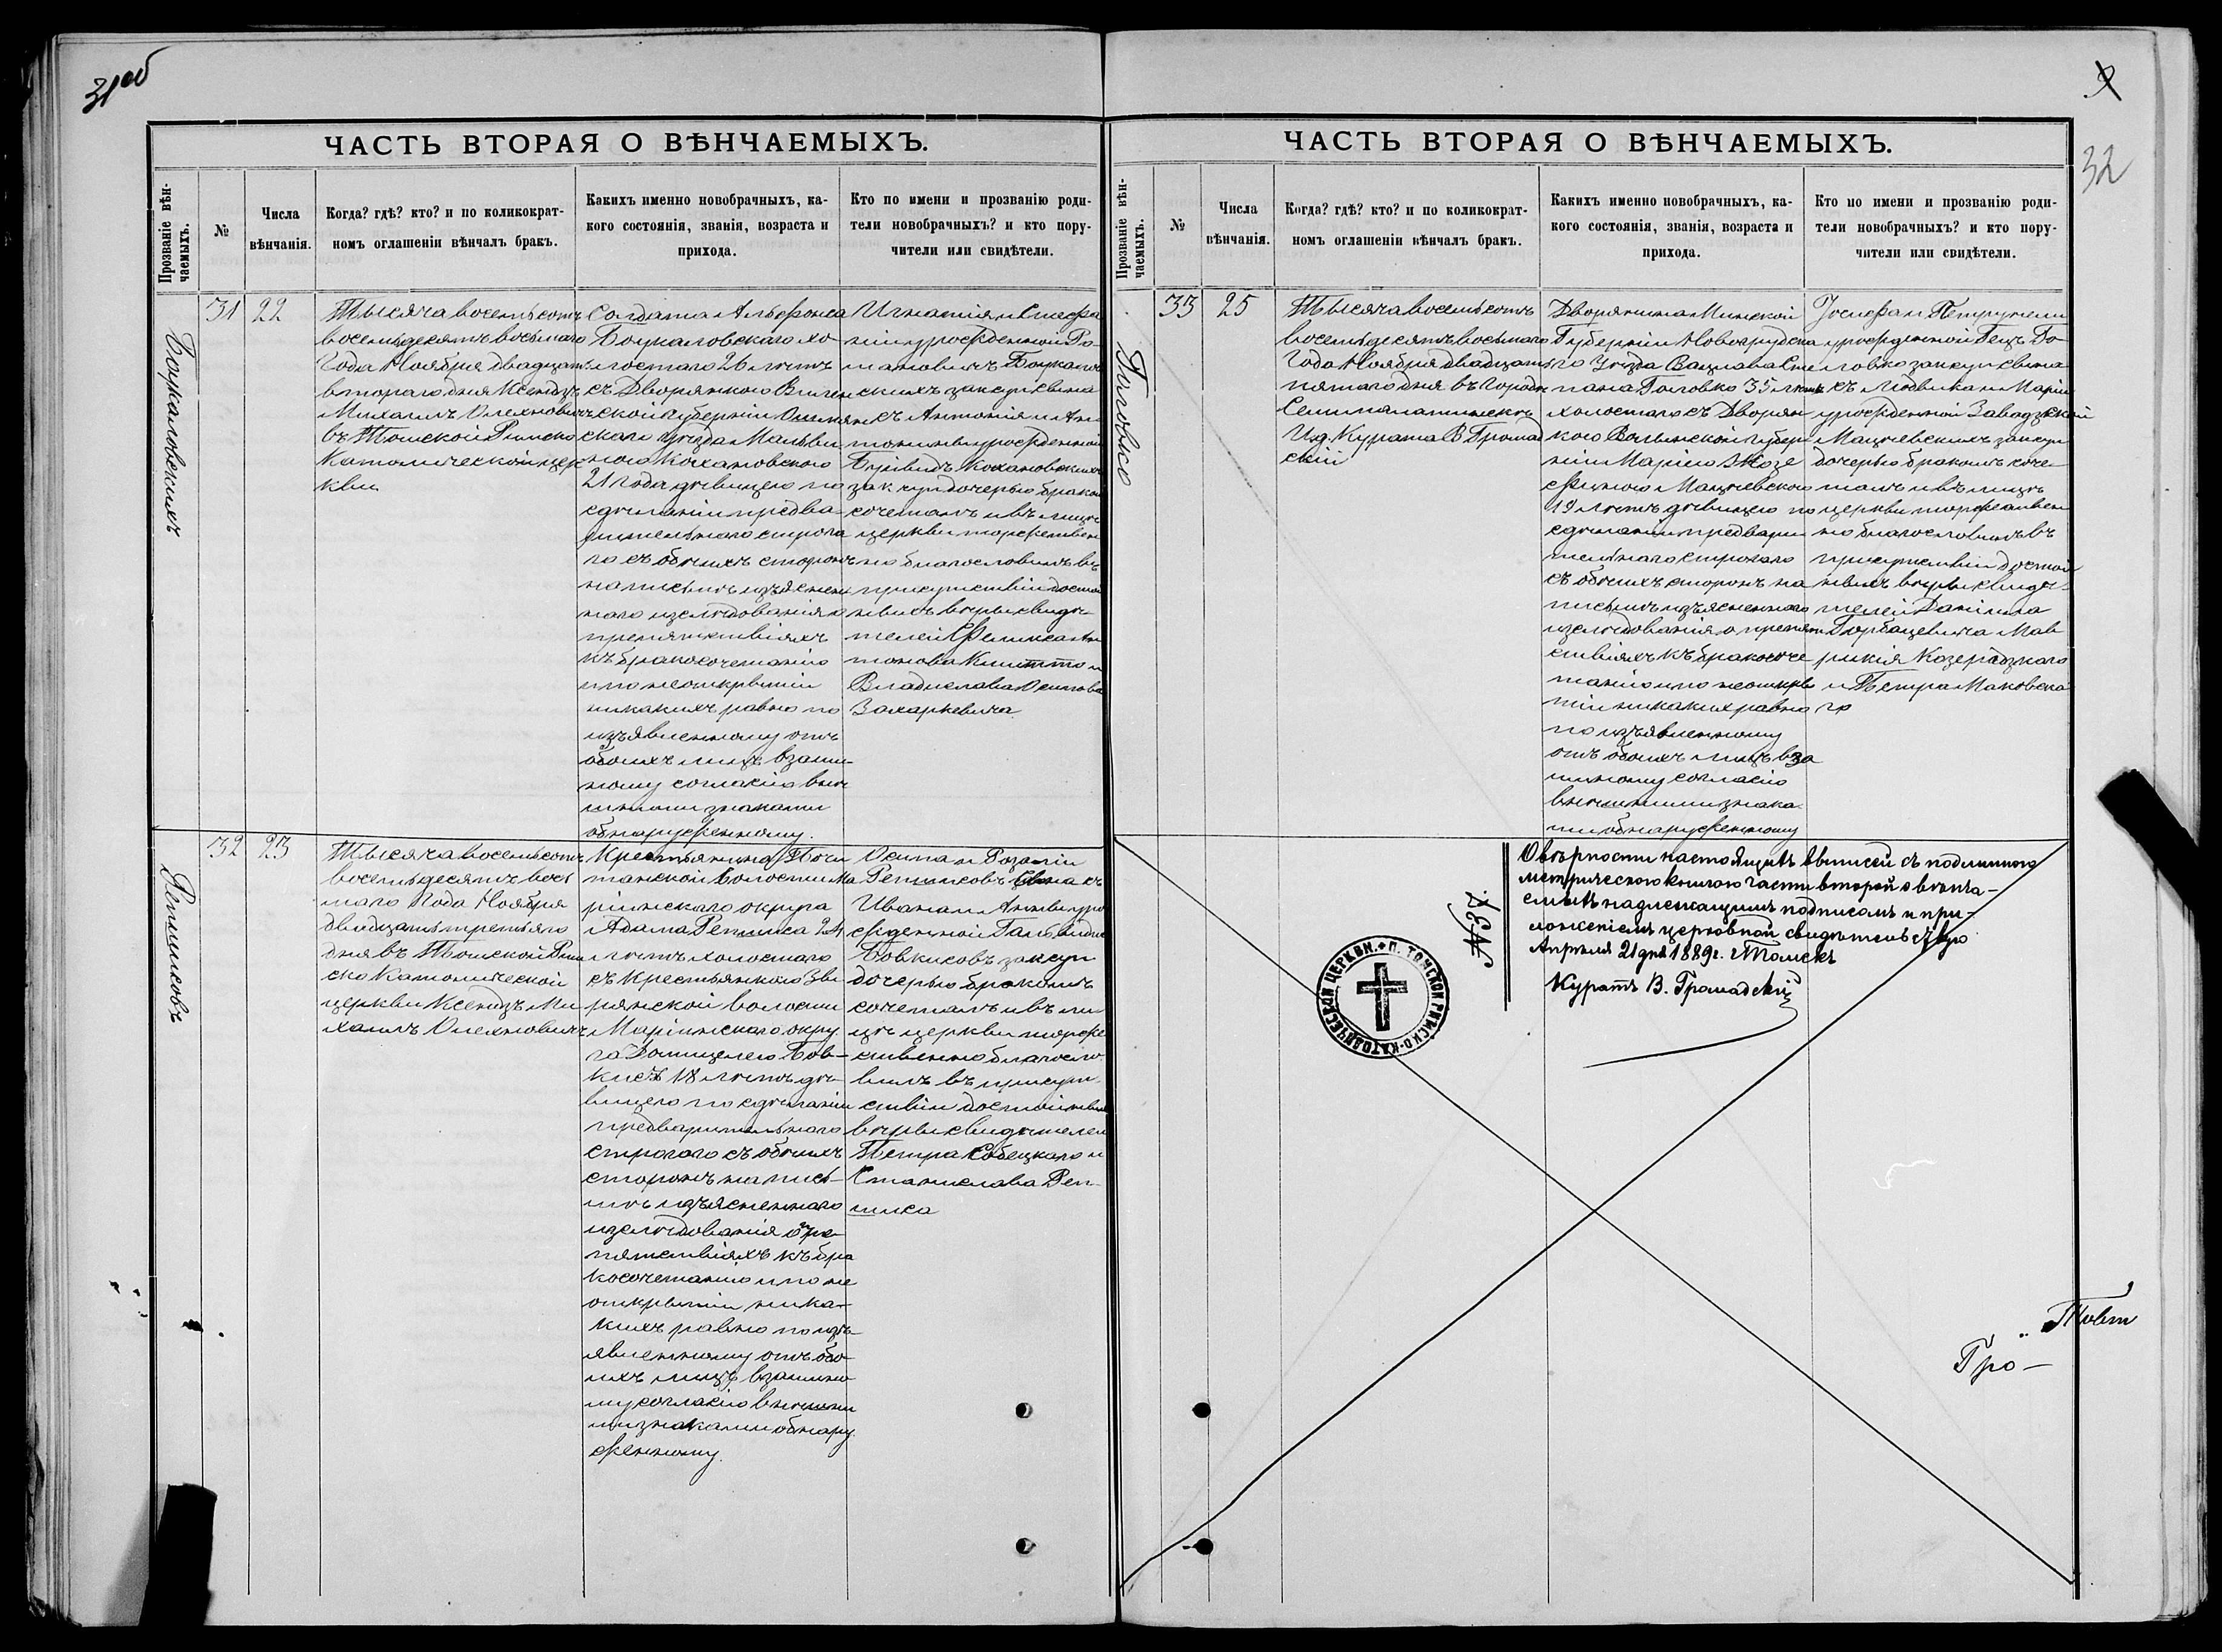 31об
ЧАСТЬ ВТОРАЯ О ВѢНЧАЕМЫХЪ.
Прозваніе вѣн-
чаемыхъ.
№
Числа
вѣнчанія.
Когда? гдѣ? кто? и по коликократ-
номъ оглашеніи вѣнчалъ бракъ.
Какихъ именно новобрачныхъ, ка-
кого состоянія, званія, возраста и
прихода.
Кто по имени и прозванію роди-
тели новобрачныхъ? и кто пору-
чители или свидѣтели.
31
22
Тысяча восемьсотъ
восемьдесятъ восьмаго
Года Ноября двадцать
втораго дня Ксендзъ
Михаилъ Олехновичъ
въ Томской Римско
Католической цер
кви
Солдата Альфонса
Боукаловскаго хо
лостаго 26 лѣтъ
съ Дворянкою Вилен
ской губерніи Ошмян
скаго уѣзда Мальви
ною Кохановскою
21 года дѣвицею по
сдѣланіи предва-
рительнаго строга
го съ обоихъ сторонъ
на письмѣ изъяснен
наго изслѣдованія о
препятствіяхъ
къ бракосочетанію
и по неоткрытіи
никакихъ равно по
изъявленному отъ
обоихъ лицъ взаим-
ному согласію внѣ
шними знаками
обнаруженному.
Игнатія и Стефа
ніи урожденной Ро-
мановичъ
скихъ законн сына
съ Антонія и Ан
тонины урожденной
Кохановскихъ
законн дочерью бракомъ
сочеталъ и въ лицѣ
церкви торжествен
но благословилъ въ
присутствіи достой
ныхъ вѣры свидѣ-
телей Феликса Ан
тонова и
Владислава Осипова
Захаркевича
32
23
Репшсковъ
Тысяча восемьсотъ
восемьдесятъ вось
маго Года Ноября
двадцать третьяго
дня въ Томской Рим
ско Католической
церкви Ксендзъ Ми
хаилъ Олехновичъ
Крестьянина Почи
танской Волости Ма
ріинскаго округа
Адама 24
лѣтъ холостаго
съ Крестьянкою Зы
рянской волости
Маріинскаго окру
га Домицелею Бов-
кисъ 18 лѣтъ дѣ-
вицею по сдѣланіи
предварительнаго
строгаго съ обоихъ
сторонъ на пись-
мѣ изъясненнаго
изслѣдованія о пре-
пятствіяхъ къ бра
косочетанію и по не
открытіи ника-
кихъ равно по изъ-
явленному отъ обо-
ихъ лицъ взаимно
му согласію внѣшни
ми знаками обнару
женному.
Осипа и Розаліи
сына съ
Ивана и Анны уро
жденной
Бовкисовъ законн
дочерью бракомъ
сочеталъ и въ ли
цѣ церкви торже
ственно благосло
вилъ въ присут-
ствіи достойныхъ
вѣры свидѣтелей
Петра Собецкаго и
Станислава Реп-
шиса
32
ЧАСТЬ ВТОРАЯ О ВѢНЧАЕМЫХЪ.
Прозваніе вѣн-
чаемыхъ.
№
Числа
вѣнчанія.
Когда? гдѣ? кто? и по коликократ-
номъ оглашеніи вѣнчалъ бракъ.
Какихъ именно новобрачныхъ, ка-
кого состоянія, званія, возраста и
прихода.
Кто по имени и прозванію роди-
тели новобрачныхъ? и кто пору-
чители или свидѣтели.
Головко
33
25
Тысяча восемьсотъ
восемьдесятъ восьмаго
Года Ноября двадцать
пятаго дня въ городѣ
Семипалатинскѣ
И.д. Курата В Громад
скій
Дворянина Минской
Губерніи Новогрудска
го Уѣзда Вацлава Сте
пана Головко 35 лѣтъ
холостаго съ Дворян
кою Волынской губер
ніи Маріею Жозе
финою Мацѣевскою
19 лѣтъ дѣвицею по
сдѣланіи предвари
тельнаго строгаго
съ обоихъ сторонъ на
письмѣ изъясненнаго
изслѣдованія о препят
ствіяхъ къ бракосоче
танію и по неоткры
тіи никакихъ равно
по изъявленному
отъ обоихъ лицъ вза
имному согласію
внѣшними знака
ми обнаруженному
Іосифа и Петрунели
урожденной Го-
ловко законн сына
съ Людвика и Маріи
урожденной Завадзской
Мацѣевскихъ законн
дочерью бракомъ соче-
талъ и въ лицѣ
церкви торжествен
но благословилъ въ
присутствіи достой
ныхъ вѣры свидѣ-
телей Даніила
Горбацевича Мав
рикія Козерадзкаго
и Петра Маковска
го
О вѣрности настоящихъ выписей съ подлинною
метрическою книгою части второй о вѣнча-
емыхъ надлежащимъ подписомъ и при-
ложеніемъ церковной свидѣтельствую
Апрѣля 21 дня 1889 г. г Томскъ
Куратъ В. Громадскій
П. ТОМСКОЙ РИМСКО-КАТОЛИЧЕСКОЙ ЦЕРКВИ.
Гро-